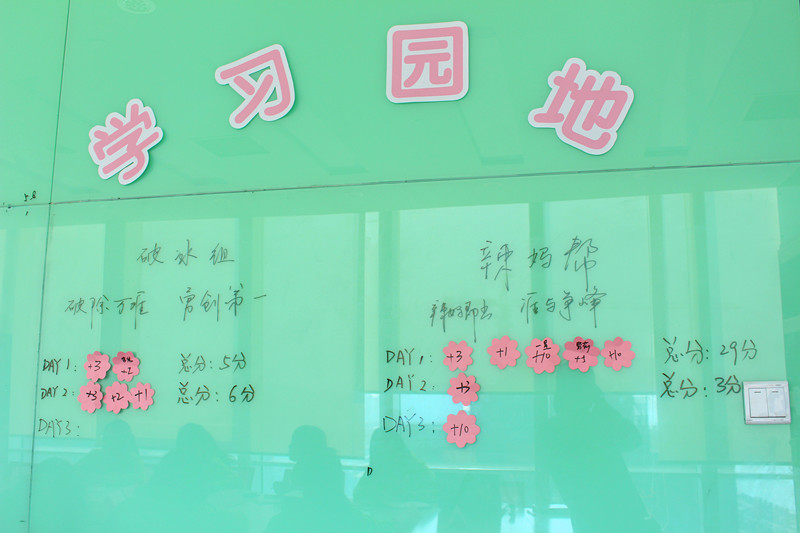 学习园地
破冰组
破除万难 勇创第一
DAY1: +3 +2 总分: 5分
DAY2: +3 +2 +1 总分: 6分
DAY3:
辣妈帮
辣妈即出 谁与争峰
DAY1: +3 +1 +10 +5 +10 总分: 29分
DAY2: +3 总分: 3分
DAY3: +10